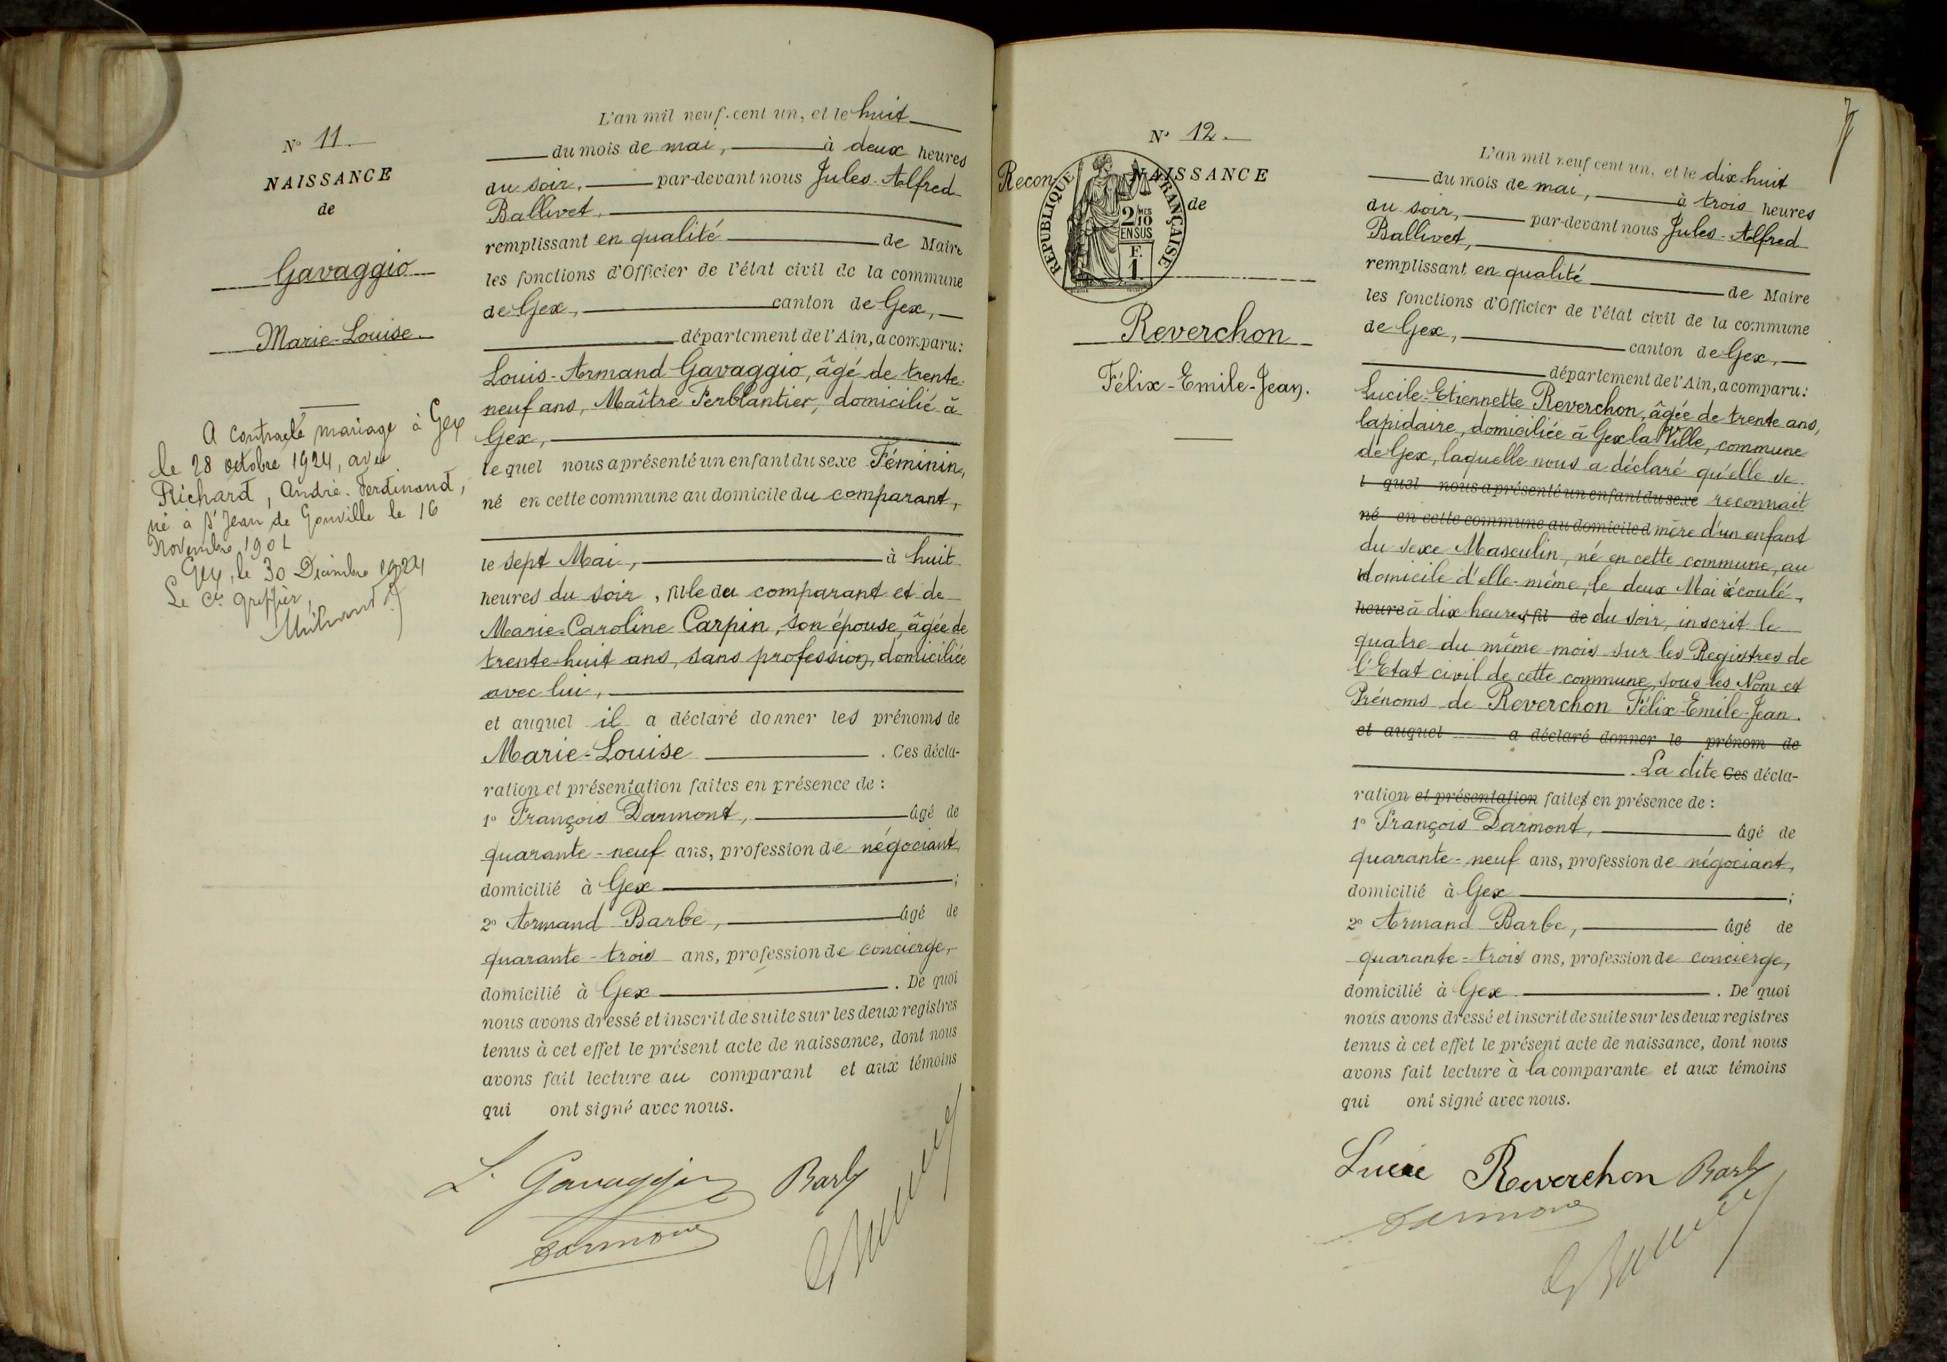 N° 11.
NAISSANCE
de
Gavaggio
Marie-Louise
A contracté mariage à Gex
le 28 octobre 1924, avec
Richard, André. Ferdinand,
né à St Jean de Gonville le 16
Novembre 1901
Gex, le 30 Décembre 1924
Le Cis greffier,
L'an mil neuf cent un, et le huit
du mois de mai, à deux heures
du soir, par-devant nous Jules-Alfred
Ballivet,
remplissant en qualité de Maire
les fonctions d'Officier de l'état civil de la commune
de Gex, canton de Gex,
département de l'Ain, a comparu:
Louis-Armand Gavaggio, âgé de trente-
neuf ans, Maître Ferblantier, domicilié à
Gex,
lequel nous a présenté un enfant du sexe Féminin,
né en cette commune au domicile du comparant,
le sept Mai, à huit
heures du soir, fille du comparant et de
Marie-Caroline Carpin, son épouse, âgée de
trente-huit ans, sans profession, domiciliée
avec lui,
et auquel il a déclaré donner les prénoms de
Marie-Louise . Ces décla-
ration et présentation faites en présence de :
1° François Darmont, âgé de
quarante-neuf ans, profession de négociant,
domicilié à Gex ;
2° Armand Barbe, âgé de
quarante-trois ans, profession de concierge,
domicilié à Gex . De quoi
nous avons dressé et inscrit de suite sur les deux registres
tenus à cet effet le présent acte de naissance, dont nous
avons fait lecture au comparant et aux témoins
qui ont signé avec nous.
L. Gavaggio Barbe
Darmont
N° 12.
Recon NAISSANCE
de
RÉPUBLIQUE FRANÇAISE
2 MES
10
EN SUS
F.
1
Reverchon
Félix-Emile-Jean.
7
L'an mil neuf cent un, et le dix huit
du mois de mai, à trois heures
du soir, par-devant nous Jules-Alfred
Ballivet,
remplissant en qualité de Maire
les fonctions d'Officier de l'état civil de la commune
de Gex, canton de Gex,
département de l'Ain, a comparu:
Lucile-Etiennette Reverchon, âgée de trente ans,
lapidaire, domiciliée à Gex la Ville, commune
de Gex, laquelle nous a déclaré qu'elle se
l quel nous a présenté un enfant du sexe reconnait
né en cette commune au domicile d mère d'un enfant
du sexe Masculin, né en cette commune, au
domicile d'elle-même, le deux Mai écoulé,
heure à dix heures fil de du soir, inscrit le
quatre du même mois sur les Registres de
l'Etat civil de cette commune, sous les Nom et
Prénoms de Reverchon Félix-Emile-Jean.
et auquel a déclaré donner le prénom de
. La dite Ces décla-
ration et présentation faites en présence de :
1° François Darmont, âgé de
quarante-neuf ans, profession de négociant,
domicilié à Gex ;
2° Armand Barbe, âgé de
quarante-trois ans, profession de concierge,
domicilié à Gex . De quoi
nous avons dressé et inscrit de suite sur les deux registres
tenus à cet effet le présent acte de naissance, dont nous
avons fait lecture à la comparante et aux témoins
qui ont signé avec nous.
Lucie Reverchon Barbe
Darmont